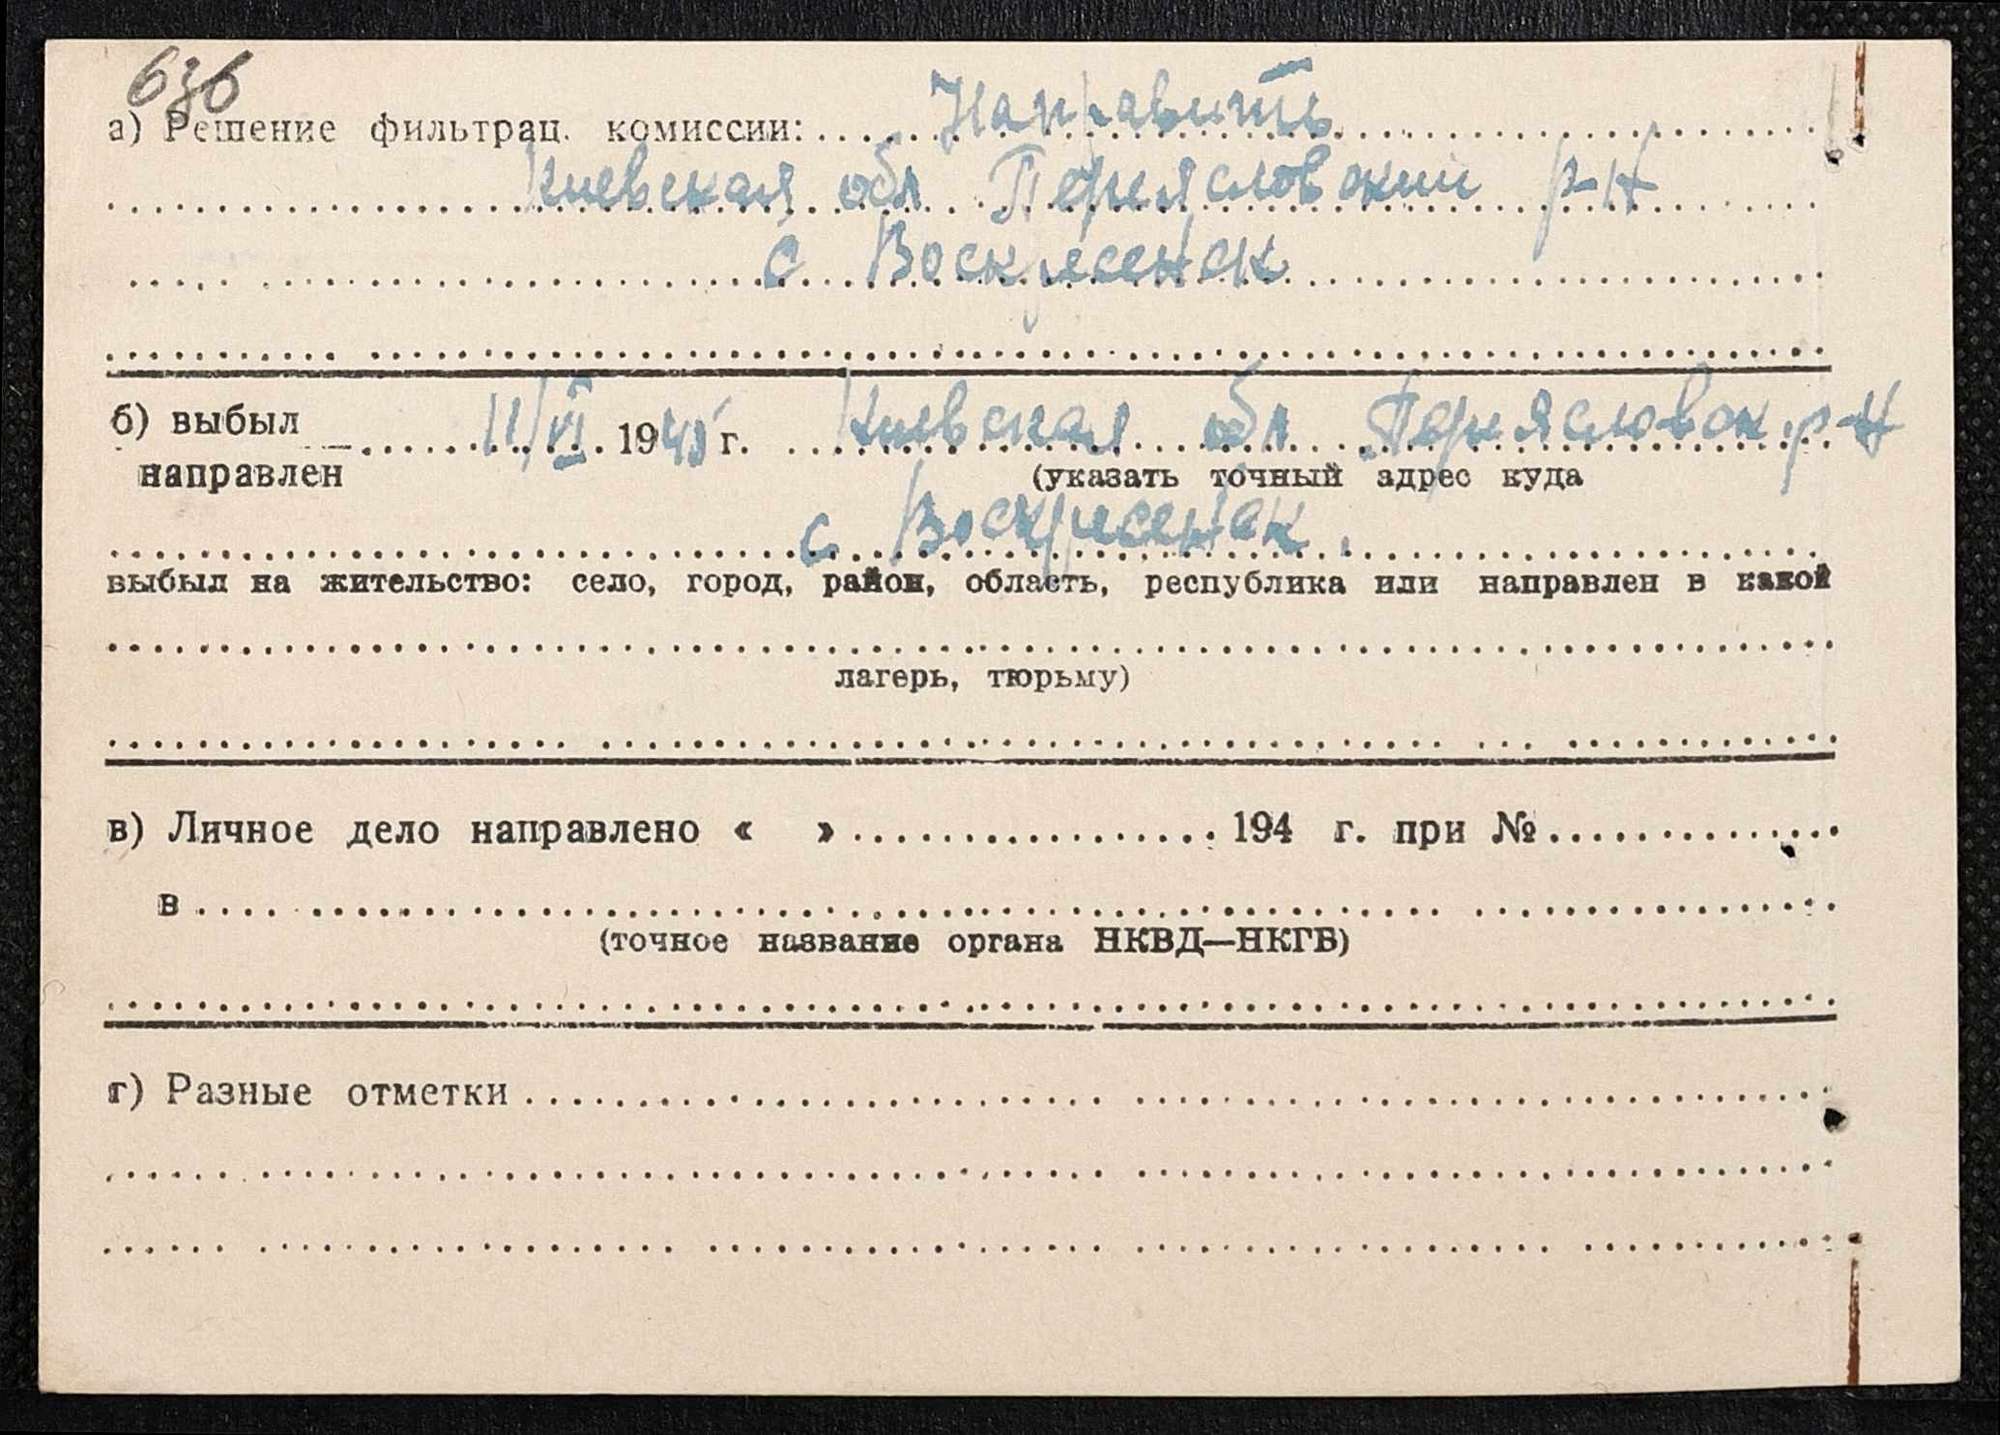 636
а) Решение фильтрац. комиссии: Направить
Киевская обл Переясловский р-н
с Воскресенск
б) выбыл 11/VI 1945 г. Киевская обл Переясловск. р-н
направлен (указать точный адрес куда
с Воскресенск.
выбыл на жительство: село, город, район, область, республика или направлен в какой
лагерь, тюрьму)
в) Личное дело направлено « » 194 г. при №
в
(точное название органа НКВД—НКГБ)
г) Разные отметки